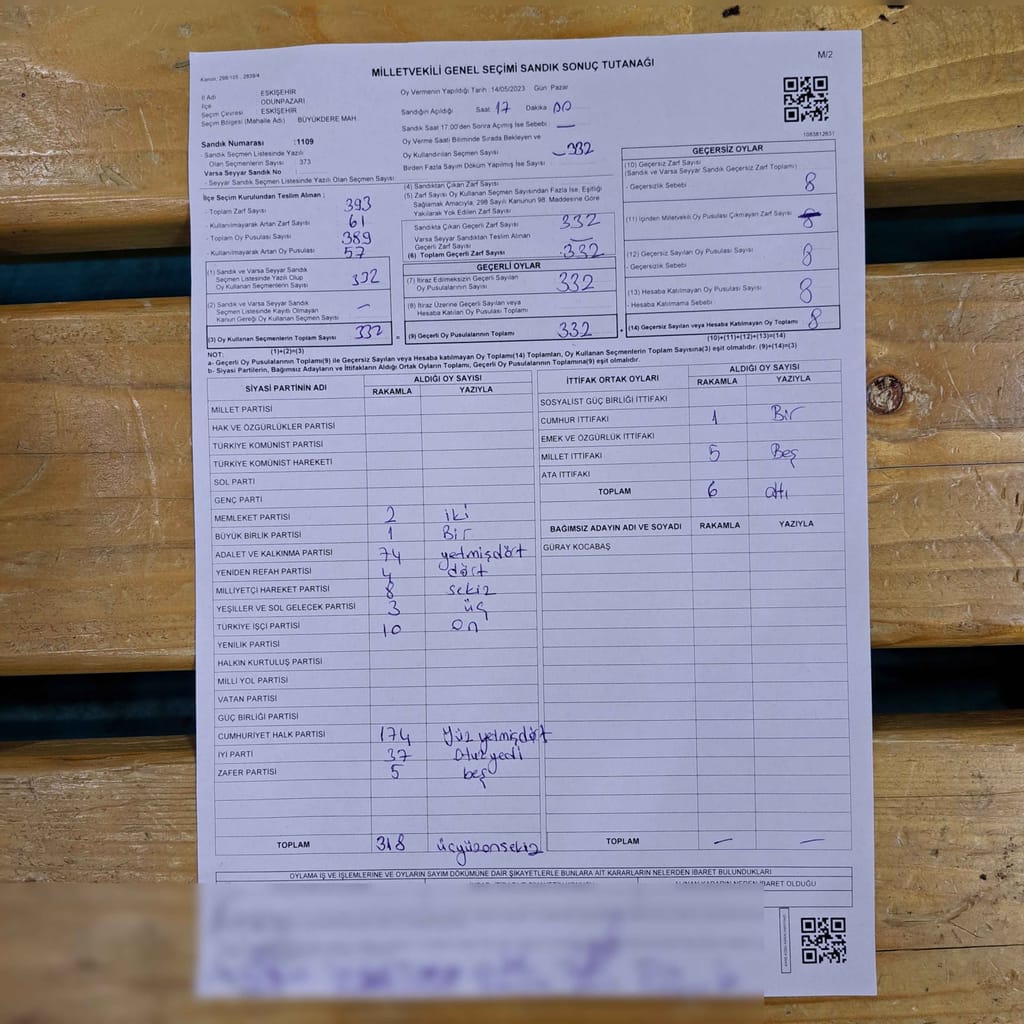 M/2
Kanun: 298/105 , 2839/4
MİLLETVEKİLİ GENEL SEÇİMİ SANDIK SONUÇ TUTANAĞI
İl Adı ESKİŞEHİR
İlçe ODUNPAZARI
Seçim Çevresi ESKİŞEHİR
Seçim Bölgesi (Mahalle Adı) BÜYÜKDERE MAH.
Sandık Numarası :1109
- Sandık Seçmen Listesinde Yazılı
Olan Seçmenlerin Sayısı 373
Varsa Seyyar Sandık No
- Seyyar Sandık Seçmen Listesinde Yazılı Olan Seçmen Sayısı
Oy Vermenin Yapıldığı Tarih : 14/05/2023 Gün Pazar
Sandığın Açıldığı Saat 17 Dakika 00
Sandık Saat 17.00'den Sonra Açılmış İse Sebebi : —
Oy Verme Saati Bitiminde Sırada Bekleyen ve
Oy Kullandırılan Seçmen Sayısı 332
Birden Fazla Sayım Döküm Yapılmış İse Sayısı :
1083812631
İlçe Seçim Kurulundan Teslim Alınan ;
- Toplam Zarf Sayısı 393
- Kullanılmayarak Artan Zarf Sayısı 61
- Toplam Oy Pusulası Sayısı 389
- Kullanılmayarak Artan Oy Pusulası 57
(1) Sandık ve Varsa Seyyar Sandık
Seçmen Listesinde Yazılı Olup
Oy Kullanan Seçmenlerin Sayısı 332
(2) Sandık ve Varsa Seyyar Sandık
Seçmen Listesinde Kayıtlı Olmayan
Kanun Gereği Oy Kullanan Seçmen Sayısı —
(3) Oy Kullanan Seçmenlerin Toplam Sayısı 332
(4) Sandıktan Çıkan Zarf Sayısı
(5) Zarf Sayısı Oy Kullanan Seçmen Sayısından Fazla İse, Eşitliği
Sağlamak Amacıyla, 298 Sayılı Kanunun 98. Maddesine Göre
Yakılarak Yok Edilen Zarf Sayısı
Sandıkta Çıkan Geçerli Zarf Sayısı 332
Varsa Seyyar Sandıktan Teslim Alınan
Geçerli Zarf Sayısı —
(6) Toplam Geçerli Zarf Sayısı 332
GEÇERLİ OYLAR
(7) İtiraz Edilmeksizin Geçerli Sayılan
Oy Pusulalarının Sayısı 332
(8) İtiraz Üzerine Geçerli Sayılan veya
Hesaba Katılan Oy Pusulası Toplamı
= (9) Geçerli Oy Pusulalarının Toplamı 332
GEÇERSİZ OYLAR
(10) Geçersiz Zarf Sayısı
(Sandık ve Varsa Seyyar Sandık Geçersiz Zarf Toplamı)
- Geçersizlik Sebebi 8
(11) İçinden Milletvekili Oy Pusulası Çıkmayan Zarf Sayısı 8
(12) Geçersiz Sayılan Oy Pusulası Sayısı
- Geçersizlik Sebebi 8
(13) Hesaba Katılmayan Oy Pusulası Sayısı
- Hesaba Katılmama Sebebi 8
+ (14) Geçersiz Sayılan veya Hesaba Katılmayan Oy Toplamı 8
NOT: (1)+(2)=(3) (10)+(11)+(12)+(13)=(14)
a- Geçerli Oy Pusulalarının Toplamı(9) ile Geçersiz Sayılan veya Hesaba katılmayan Oy Toplamı(14) Toplamları, Oy Kullanan Seçmenlerin Toplam Sayısına(3) eşit olmalıdır. (9)+(14)=(3)
b- Siyasi Partilerin, Bağımsız Adayların ve İttifakların Aldığı Ortak Oyların Toplamı, Geçerli Oy Pusulalarının Toplamına(9) eşit olmalıdır.
SİYASİ PARTİNİN ADI ALDIĞI OY SAYISI
RAKAMLA YAZIYLA
MİLLET PARTİSİ
HAK VE ÖZGÜRLÜKLER PARTİSİ
TÜRKİYE KOMÜNİST PARTİSİ
TÜRKİYE KOMÜNİST HAREKETİ
SOL PARTİ
GENÇ PARTİ
MEMLEKET PARTİSİ 2 iki
BÜYÜK BİRLİK PARTİSİ 1 Bir
ADALET VE KALKINMA PARTİSİ 74 yetmişdört
YENİDEN REFAH PARTİSİ 4 dört
MİLLİYETÇİ HAREKET PARTİSİ 8 sekiz
YEŞİLLER VE SOL GELECEK PARTİSİ 3 üç
TÜRKİYE İŞÇİ PARTİSİ 10 On
YENİLİK PARTİSİ
HALKIN KURTULUŞ PARTİSİ
MİLLİ YOL PARTİSİ
VATAN PARTİSİ
GÜÇ BİRLİĞİ PARTİSİ
CUMHURİYET HALK PARTİSİ 174 Yüz yetmişdört
İYİ PARTİ 37 Otuzyedi
ZAFER PARTİSİ 5 beş
TOPLAM 318 üçyüzonsekiz
İTTİFAK ORTAK OYLARI ALDIĞI OY SAYISI
RAKAMLA YAZIYLA
SOSYALİST GÜÇ BİRLİĞİ İTTİFAKI
CUMHUR İTTİFAKI 1 Bir
EMEK VE ÖZGÜRLÜK İTTİFAKI
MİLLET İTTİFAKI 5 Beş
ATA İTTİFAKI
TOPLAM 6 altı
BAĞIMSIZ ADAYIN ADI VE SOYADI RAKAMLA YAZIYLA
GÜRAY KOCABAŞ
TOPLAM — —
OYLAMA İŞ VE İŞLEMLERİNE VE OYLARIN SAYIM DÖKÜMÜNE DAİR ŞİKAYETLERLE BUNLARA AİT KARARLARIN NELERDEN İBARET BULUNDUKLARI
ALINAN KARARIN NEDEN İBARET OLDUĞU